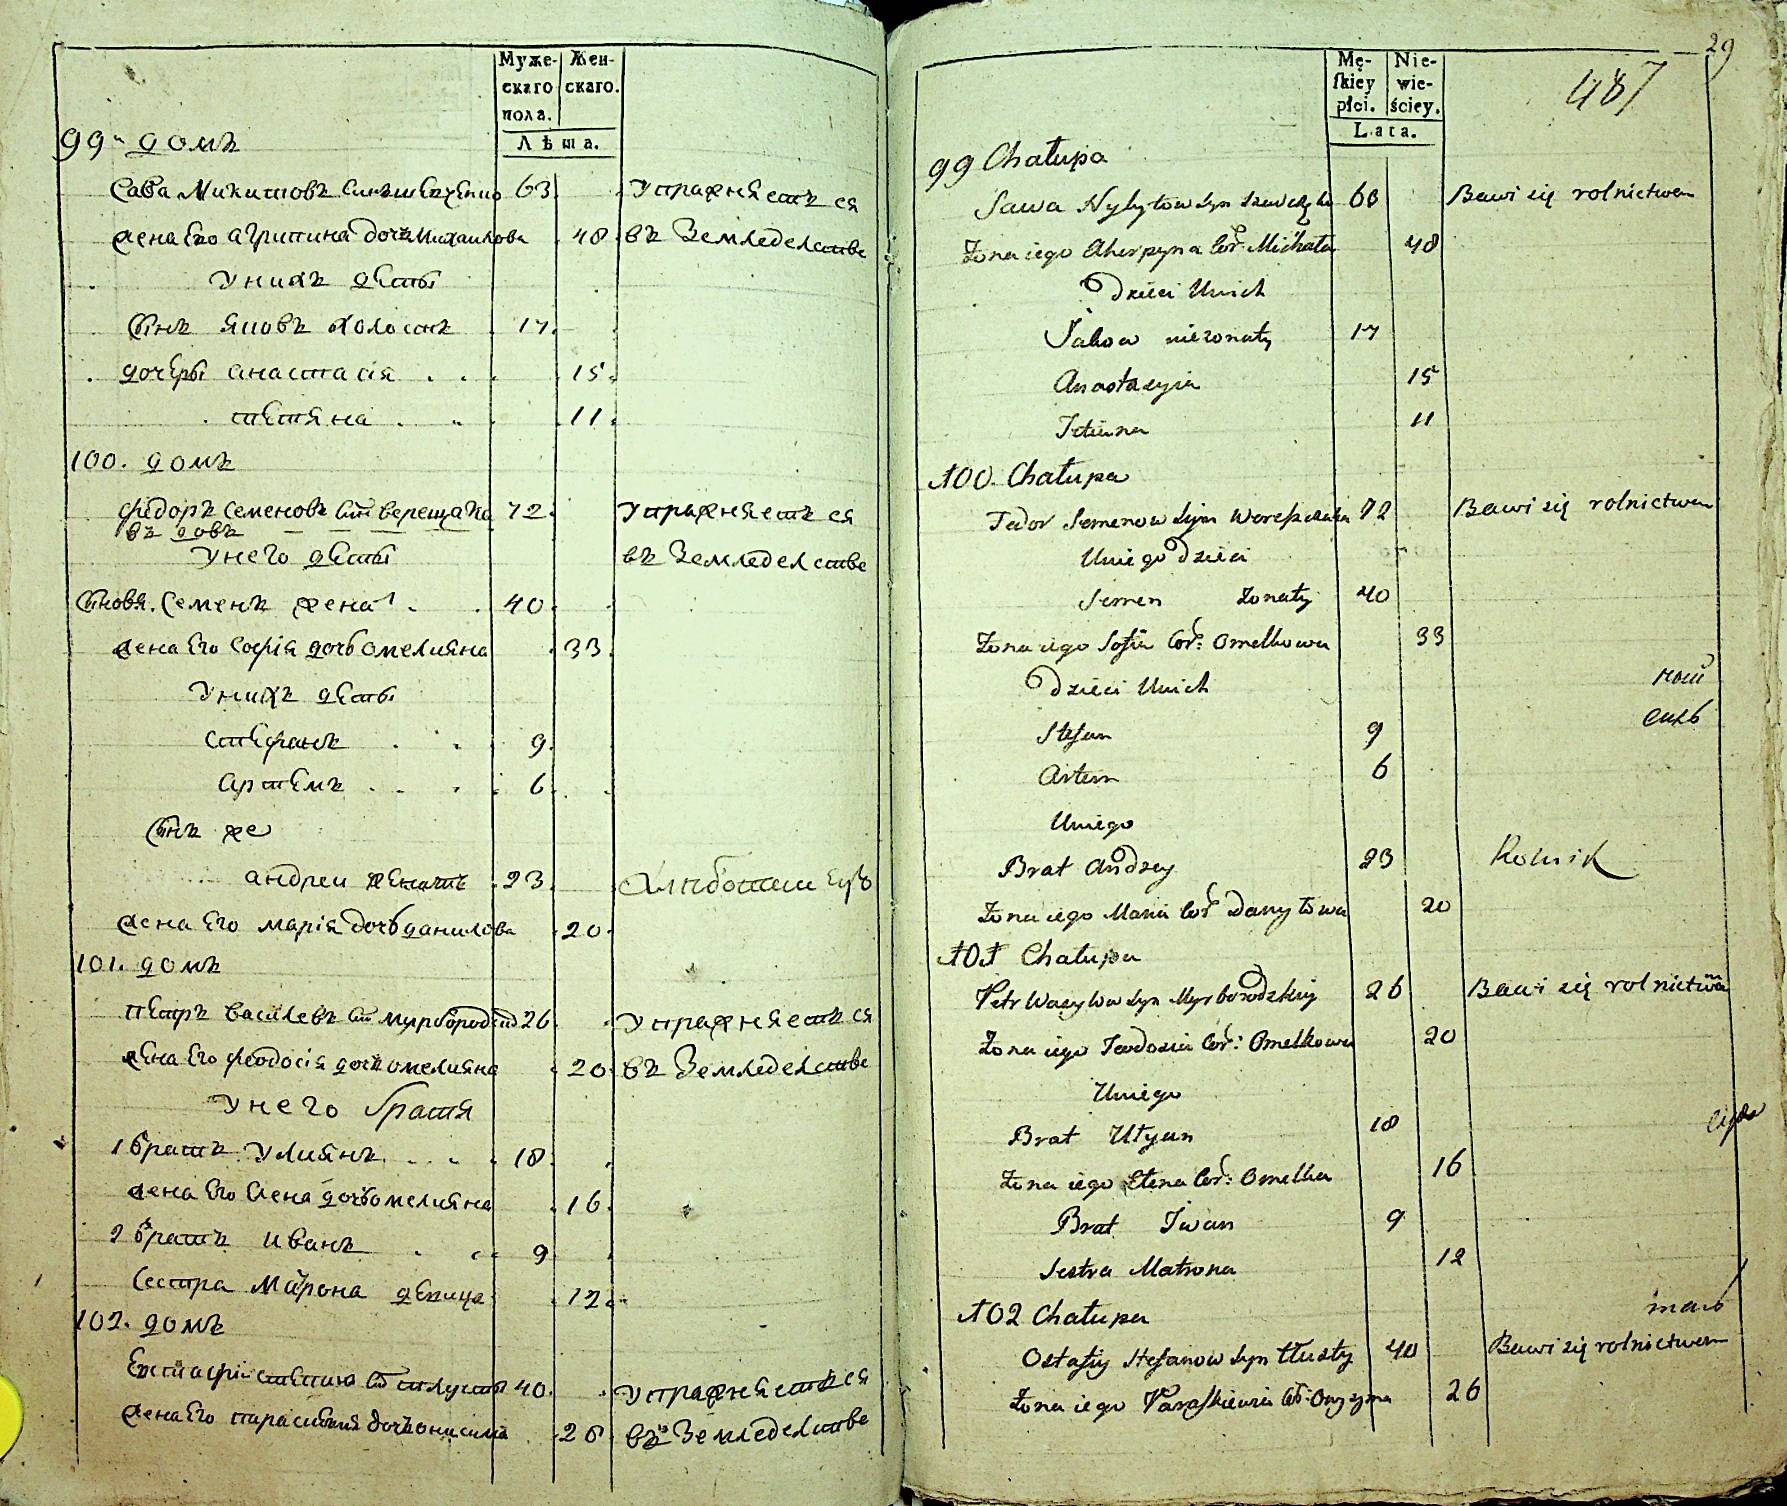 Муже- Жен-
скаго скаго.
пола.
Лѣта.
99 домъ
Сава Микитовъ синъ Шевченко 63 Упражняетъся
жена Его Агрипина дочъ Михаилова 48 въ Земледелстве
Унихъ дети
Синъ Яковъ холостъ 17
дочери анастасія 15
тетяна 11
100. домъ
Федоръ Семеновъ син верещака 72 Упражняетъ ся
въ довъ
Унего дети въ Земледелстве
Синовя. Семенъ жена 40
жена Его Софія дочь омеляна 33
Унихъ дети
Стефанъ 9
Артемъ 6
Синъ же
андреи женатъ 23
жена Его марія дочь данилова 20
101. домъ
Петръ Василевъ син миргород 26 Упражняетъ ся
жена Его феодосія дочъ омеляна 20 въ Земледелстве
Унего братя
1 братъ Улиянъ 18
жена Его Елена дочь омеляна 16
2 братъ иванъ 9
Сестра Матрона девица 12
102. домъ
40 Упражняетъся
жена Его параскевия дочъ онисима 26 въ Земледелстве
29
487
Mę- Nie-
skiey wie-
płci. ściey.
Lata.
99 Chałupa
Sawa Nykytow syn Szewczęko 63 Bawi się rolnictwem
Żona iego Aherpyna Cor: Michała 48
Dzieci Unich
Jakow nieżonaty 17
Anastazyia 15
Tetiana 11
100. Chałupa
Fedor Semenow syn Wereszczaka 72 Bawi się rolnictwem
Uniego dzieci
Semen Żonaty 40
Żona iego Sofia Cor: Omelkowa 33
Dzieci Unich
Stefan 9
Artem 6
Uniego
Brat Andrzey 23 Rolnik
Żona iego Maria Cor: Danyłowa 20
101 Chałupa
Petr Wasylow syn Myrhorodzkiy 26 Bawi się rolnictwem
Żona iego Teodosia Cor: Omelkowa 20
Uniego
Brat Ulyan 18
Żona iego Elena Cor: Omelka 16
Brat Iwan 9
Sestra Matrona 12
102 Chałupa
Ostafiy Stefanow syn tłusty 40 Bawi się rolnictwem
Żona iego Paraskiewia Cor: Onyzyma 26